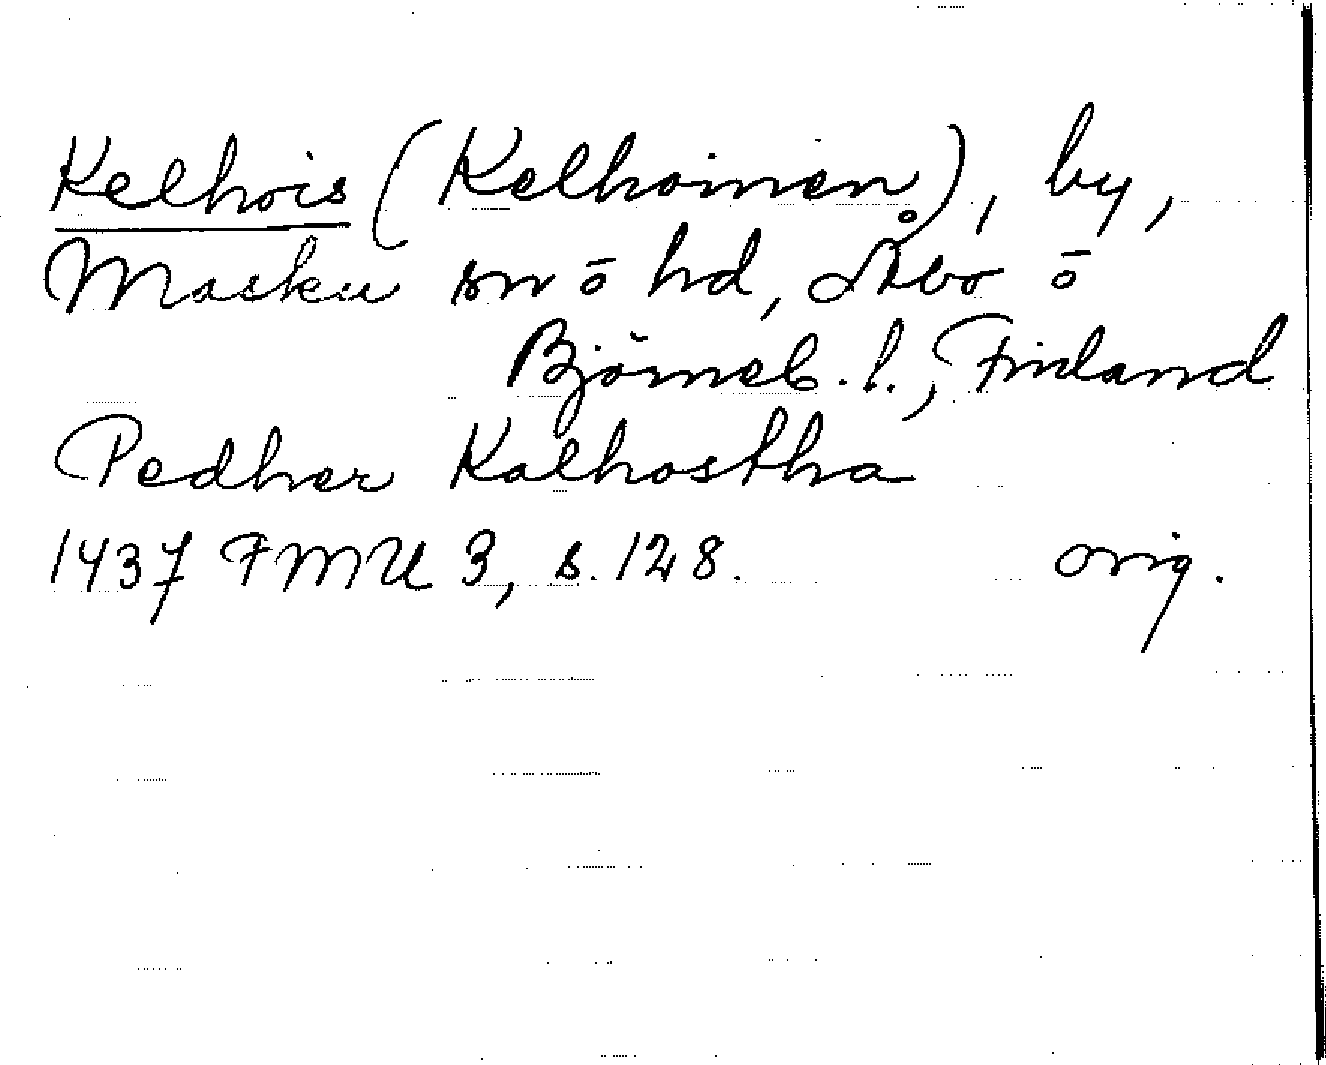 Kelhois (Kelhoinen), by,
Masku sn ō hd, Åbo ō
Björneb. l., Finland
Pedher Kalhostha
1437 FMU 3, s. 128. orig.